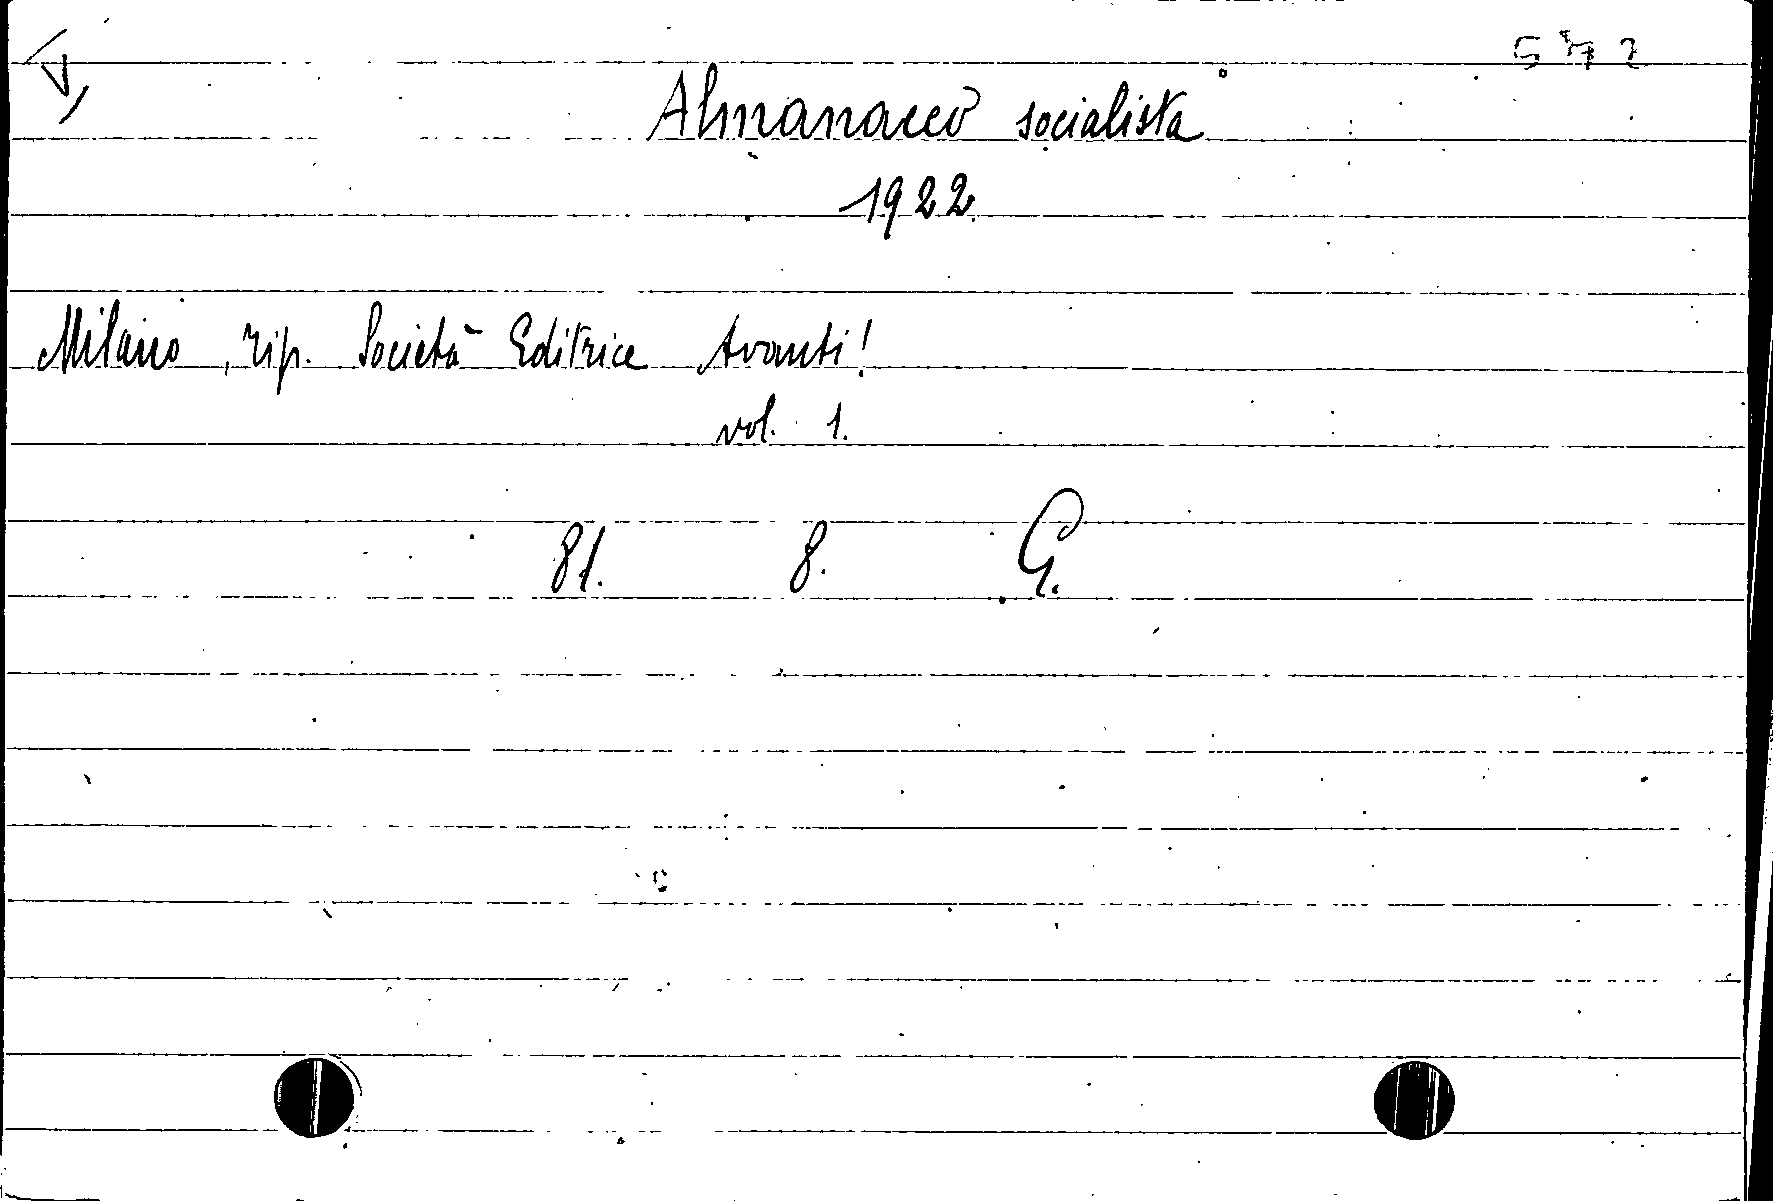 572
Almanacco socialista
1922.
Milano, tip. Società Editrice Avanti!
vol. 1.
81. 8. G.